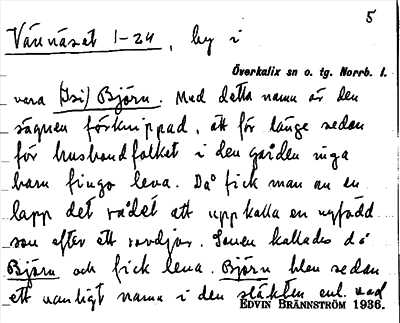 5
Vännäset 1-24, by i
Överkalix sn o. tg. Norrb. l.
vara (Isi) Björn. Med detta namn är den
sägnen förknippad, att för länge sedan
för husbondfolket i den gården inga
barn fingo leva. Då fick man av en
lapp det rådet att uppkalla en nyfödd
son efter ett rovdjur. Sonen kallades då
Björn och fick leva. Björn blev sedan
ett vanligt namn i den släkten enl. vad
EDVIN BRÄNNSTRÖM 1936.